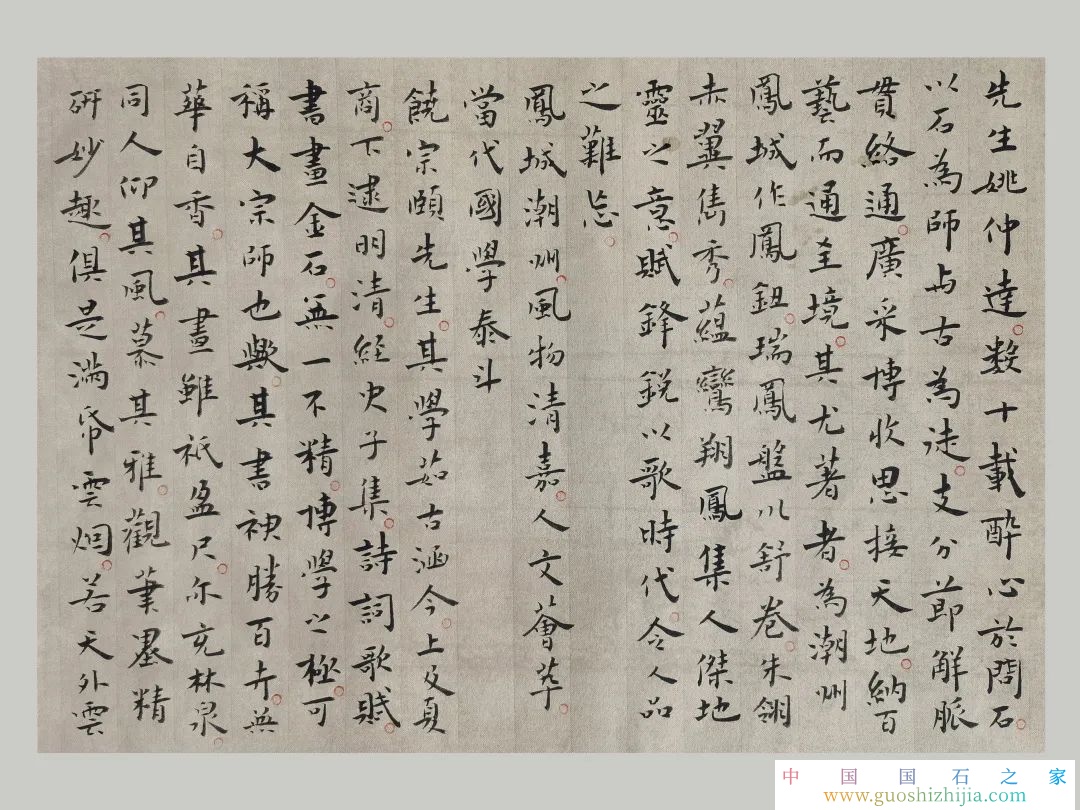 先生姚仲達數十載醉心於問石
以石為師与古為徒支分節解脈
貫絡通廣采博收思接天地納百
藝而通至境其尤著者為潮州
鳳城作鳳鈕瑞鳳盤以舒卷朱翎
赤翼雋秀蘊鸞翔鳳集人傑地
靈之意賦鋒銳以歌時代令人品
之難忘
鳳城潮州風物清嘉人文薈萃
當代國學泰斗
饒宗頤先生其學茹古涵今上及夏
商下逮明清經史子集詩詞歌賦
書畫金石無一不精博學之極可
稱大宗師也歟其書神勝百卉無
華自香其畫雖祇盈尺尔充林泉
同人仰其風慕其雅觀筆墨精
研妙趣俱是滿帋雲烟若天外雲
中国国石之家
www.guoshizhijia.com